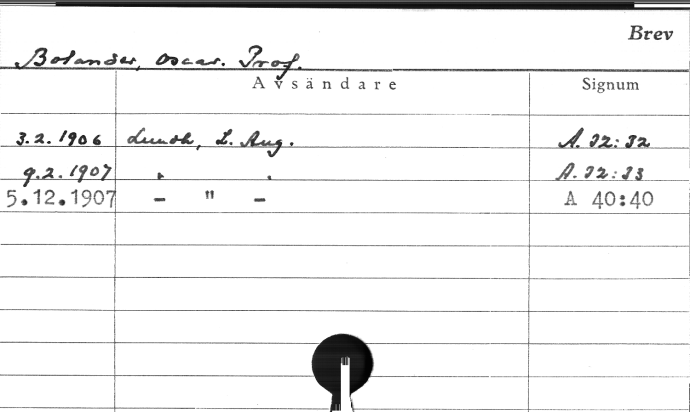 Brev
Bolander, Oscar. Prof.
Avsändare Signum
3.2.1906 Lundh, L. Aug. A. 32:32
9.2.1907 " " A. 32:33
5.12.1907 - " - A 40:40